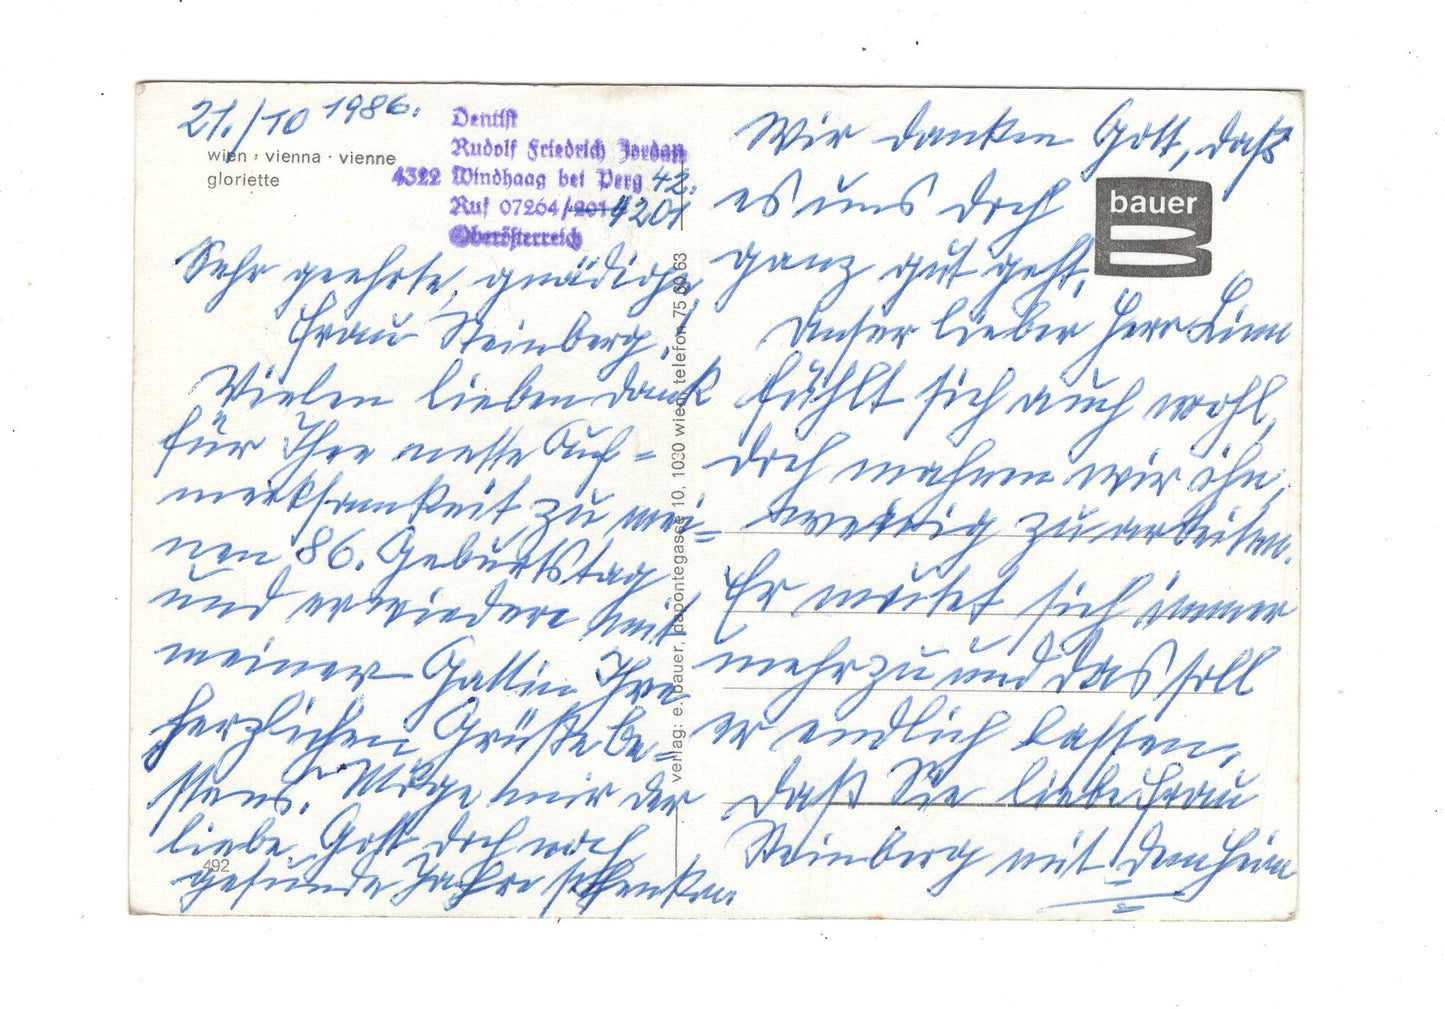 21./10 1986.
wien · vienna · vienne
gloriette
Dentist
Rudolf Friedrich Jordan
4322 Windhaag bei Perg 42.
Ruf 07264/201 4201
Oberösterreich
Sehr geehrte, gnädige
Frau Steinberg!
Vielen lieben Dank
für Ihre nette Auf=
merksamkeit zu mei=
nen 86. Geburtstag
und erwiedere mit
meiner Gattin Ihre
herzlichen Grüße be=
stens. Möge mir der
liebe Gott doch noch
gesunde Jahre schenken
492
verlag: e. bauer, dapontegasse 10, 1030 wien, telefon 75 60 63
Wir danken Gott, daß
es uns doch
ganz gut geht.
bauer
Unser lieber Herr
fühlt sich auch wohl,
doch mahnen wir ihn,
wenig zu arbeiten.
Er mutet sich immer
mehr zu und das soll
er endlich lassen,
daß Sie liebe Frau
Steinberg mit dem Heim